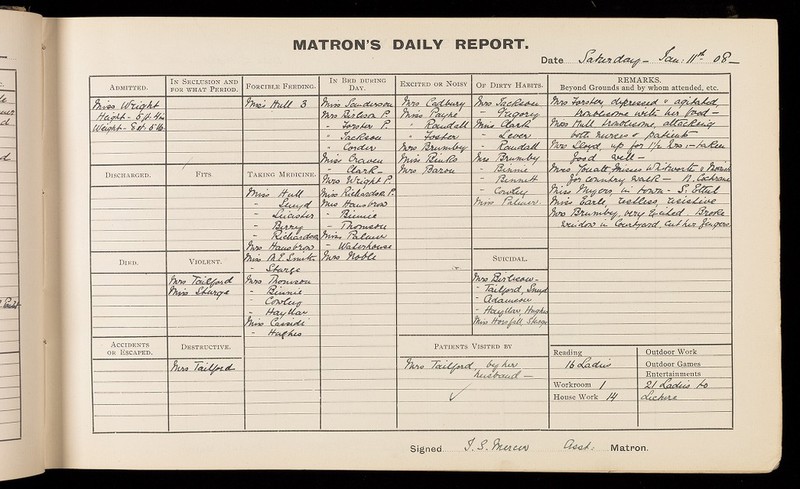 MATRON'S DAILY REPORT.
Date Saturday - Jan: 11th 08 -
ADMITTED.
Miss Wright
Height - 5 ft. 4 in
Weight -
DISCHARGED.
DIED.
ACCIDENTS
OR ESCAPED.
IN SECLUSION AND
FOR WHAT PERIOD.
FITS.
VIOLENT.
Mrs Tailford
Miss Sturge
DESTRUCTIVE.
Mrs Tailford
FORCIBLE FEEDING.
Miss Hull 3
TAKING MEDICINE.
Miss Hull
" Lloyd
" Leicester
" Berry
" Richardson
Mrs Hansbrow
Miss A.E. Smith
- Sturge
Mrs Thomson
- Binnie
- Cowley
- Hayllar
Miss Cassidi
- Hughes
IN BED DURING
DAY.
Miss Sanderson
Mrs P.
- Forster P.
- Jackson
- Corder
Miss Craven
- Clark
Mrs Wright P.
Miss Richardson P.
Mrs Hansbrow
- Binnie
- Thomson
Miss Palmer
- Waterhouse
Mrs Noble
EXCITED OR NOISY
Mrs Cadbury
Miss Payne
" Randall
" Foster
Mrs Brumby
Miss Binks
Mrs Baron
OF DIRTY HABITS.
Mrs Jackson
- Pugorey
Miss Clark
- Lever
- Randall
Mrs Brumby
- Binnie
- Bennett
- Cowley
Miss Palmer
SUICIDAL.
Mrs
- Tailford, Lloyd
- Adamson
- Hayllar, Hughes
Miss Horsfall, Sturge
PATIENTS VISITED BY
Mrs Tailford by her
husband -
REMARKS.
Beyond Grounds and by whom attended, etc.
Mrs Forster depressed & agitated,
troublesome with her food -
Miss Hull troublesome, attacking
both nurses & patients
Mrs Lloyd up for 1½ hrs - taken
food well -
Mrs Jouatt, Misses Whitworth &
for country walk - A. Cochrane
Miss Myers in town - S.
Miss Earle, restless, resistive
Mrs Brumby, very excited. Broke
window in Courtyard, cut her fingers
Reading
16 Ladies
Workroom 1
House Work 14
Outdoor Work
Outdoor Games
Entertainments
21 Ladies to
Lecture
Signed J. S. Mercer Asst: Matron.